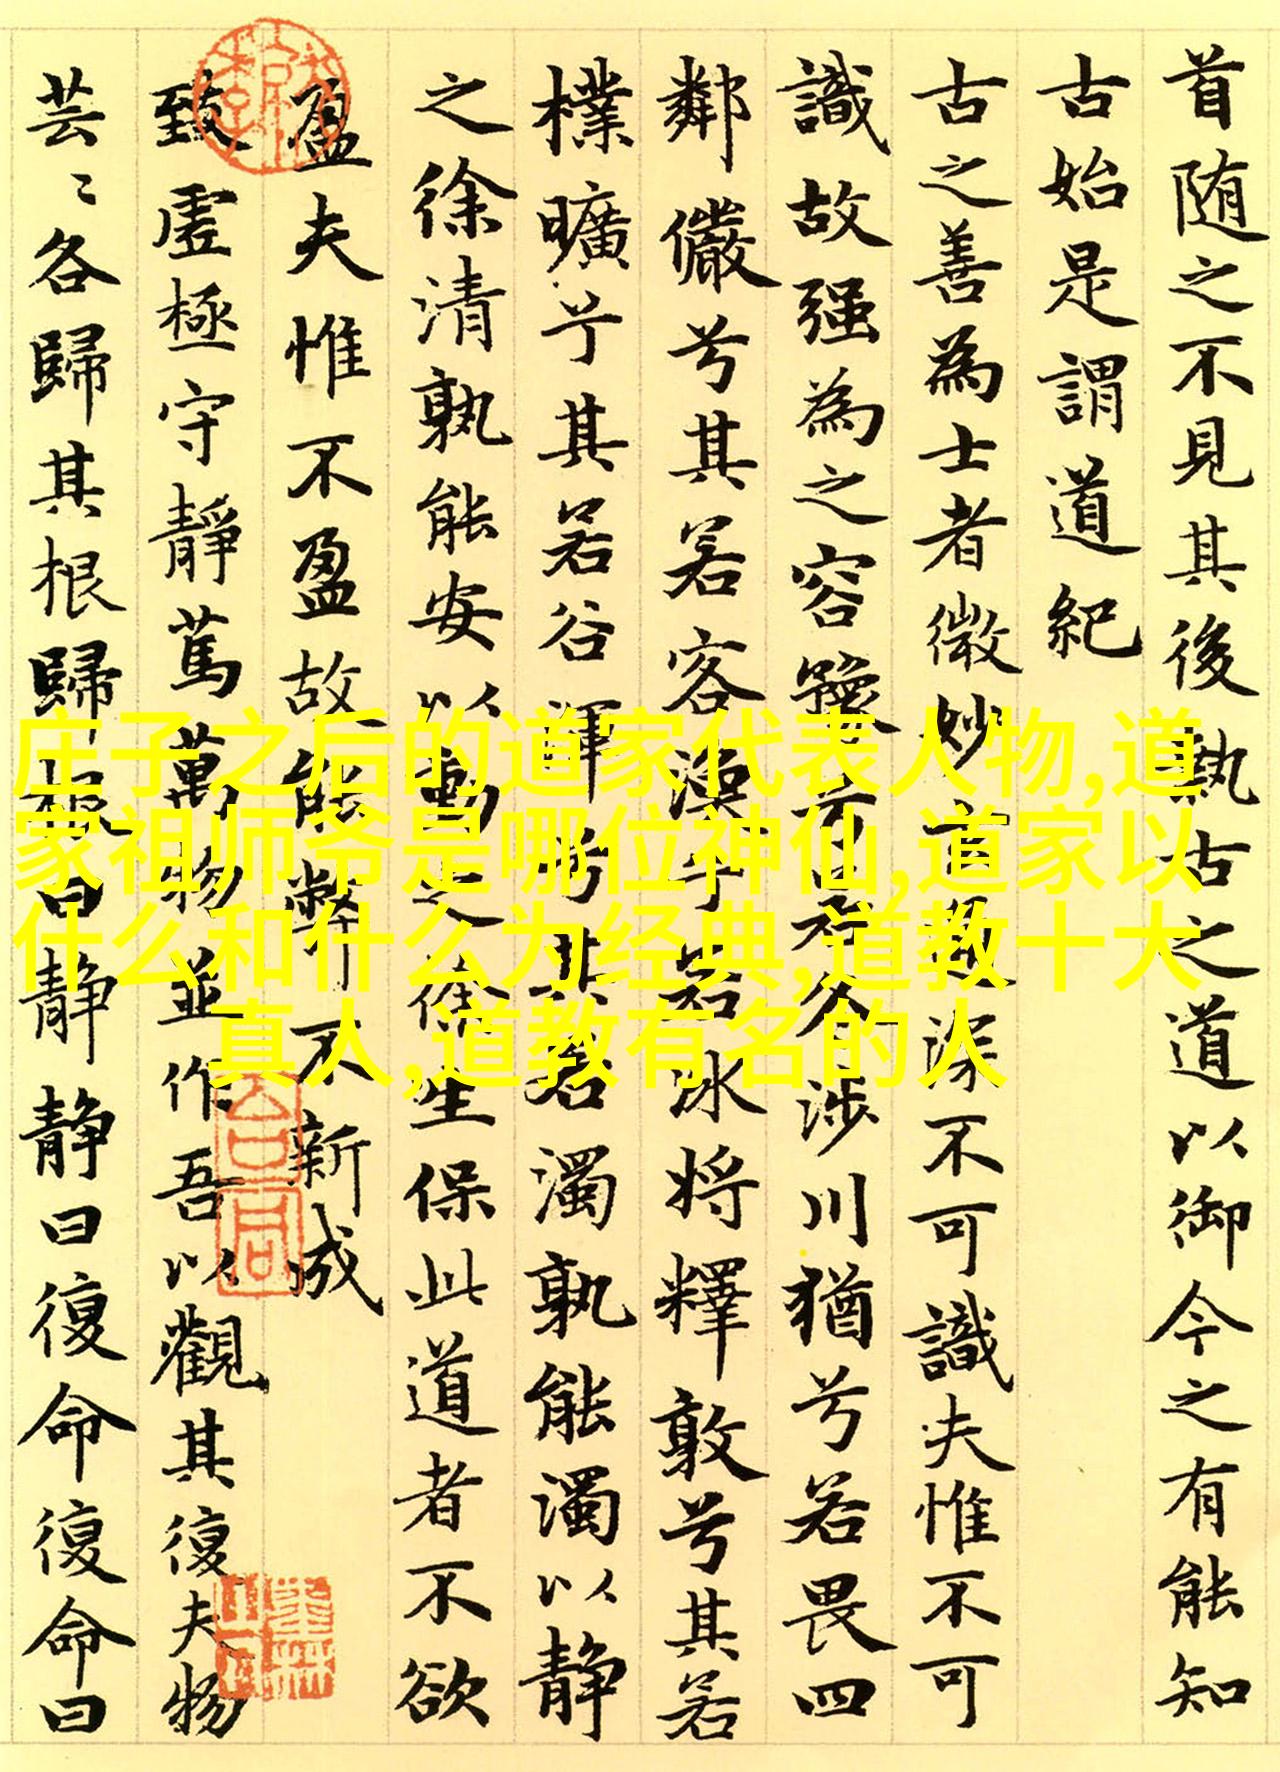 首随之不見其後執古之道以御今之有能知
古始是謂道紀
古之善為士者微妙玄通深不可識夫惟不可
識故强為之容豫兮若冬涉川猶兮若畏四
鄰儼兮其若客渙乎若冰將釋敦兮其若
樸曠兮其若谷渾兮其若濁孰能濁以静
之徐清孰能安以動之徐生保此道者不欲
盈夫惟不盈故能弊不新成
致虛極守靜篤萬物並作吾以觀其復夫物
芸〻各歸其根歸根曰静静曰復命復命曰
庄子之后的道家代表人物,道
家祖师爷是哪位神仙,道家以
什么和什么为经典,道教十大
真人,道教有名的人